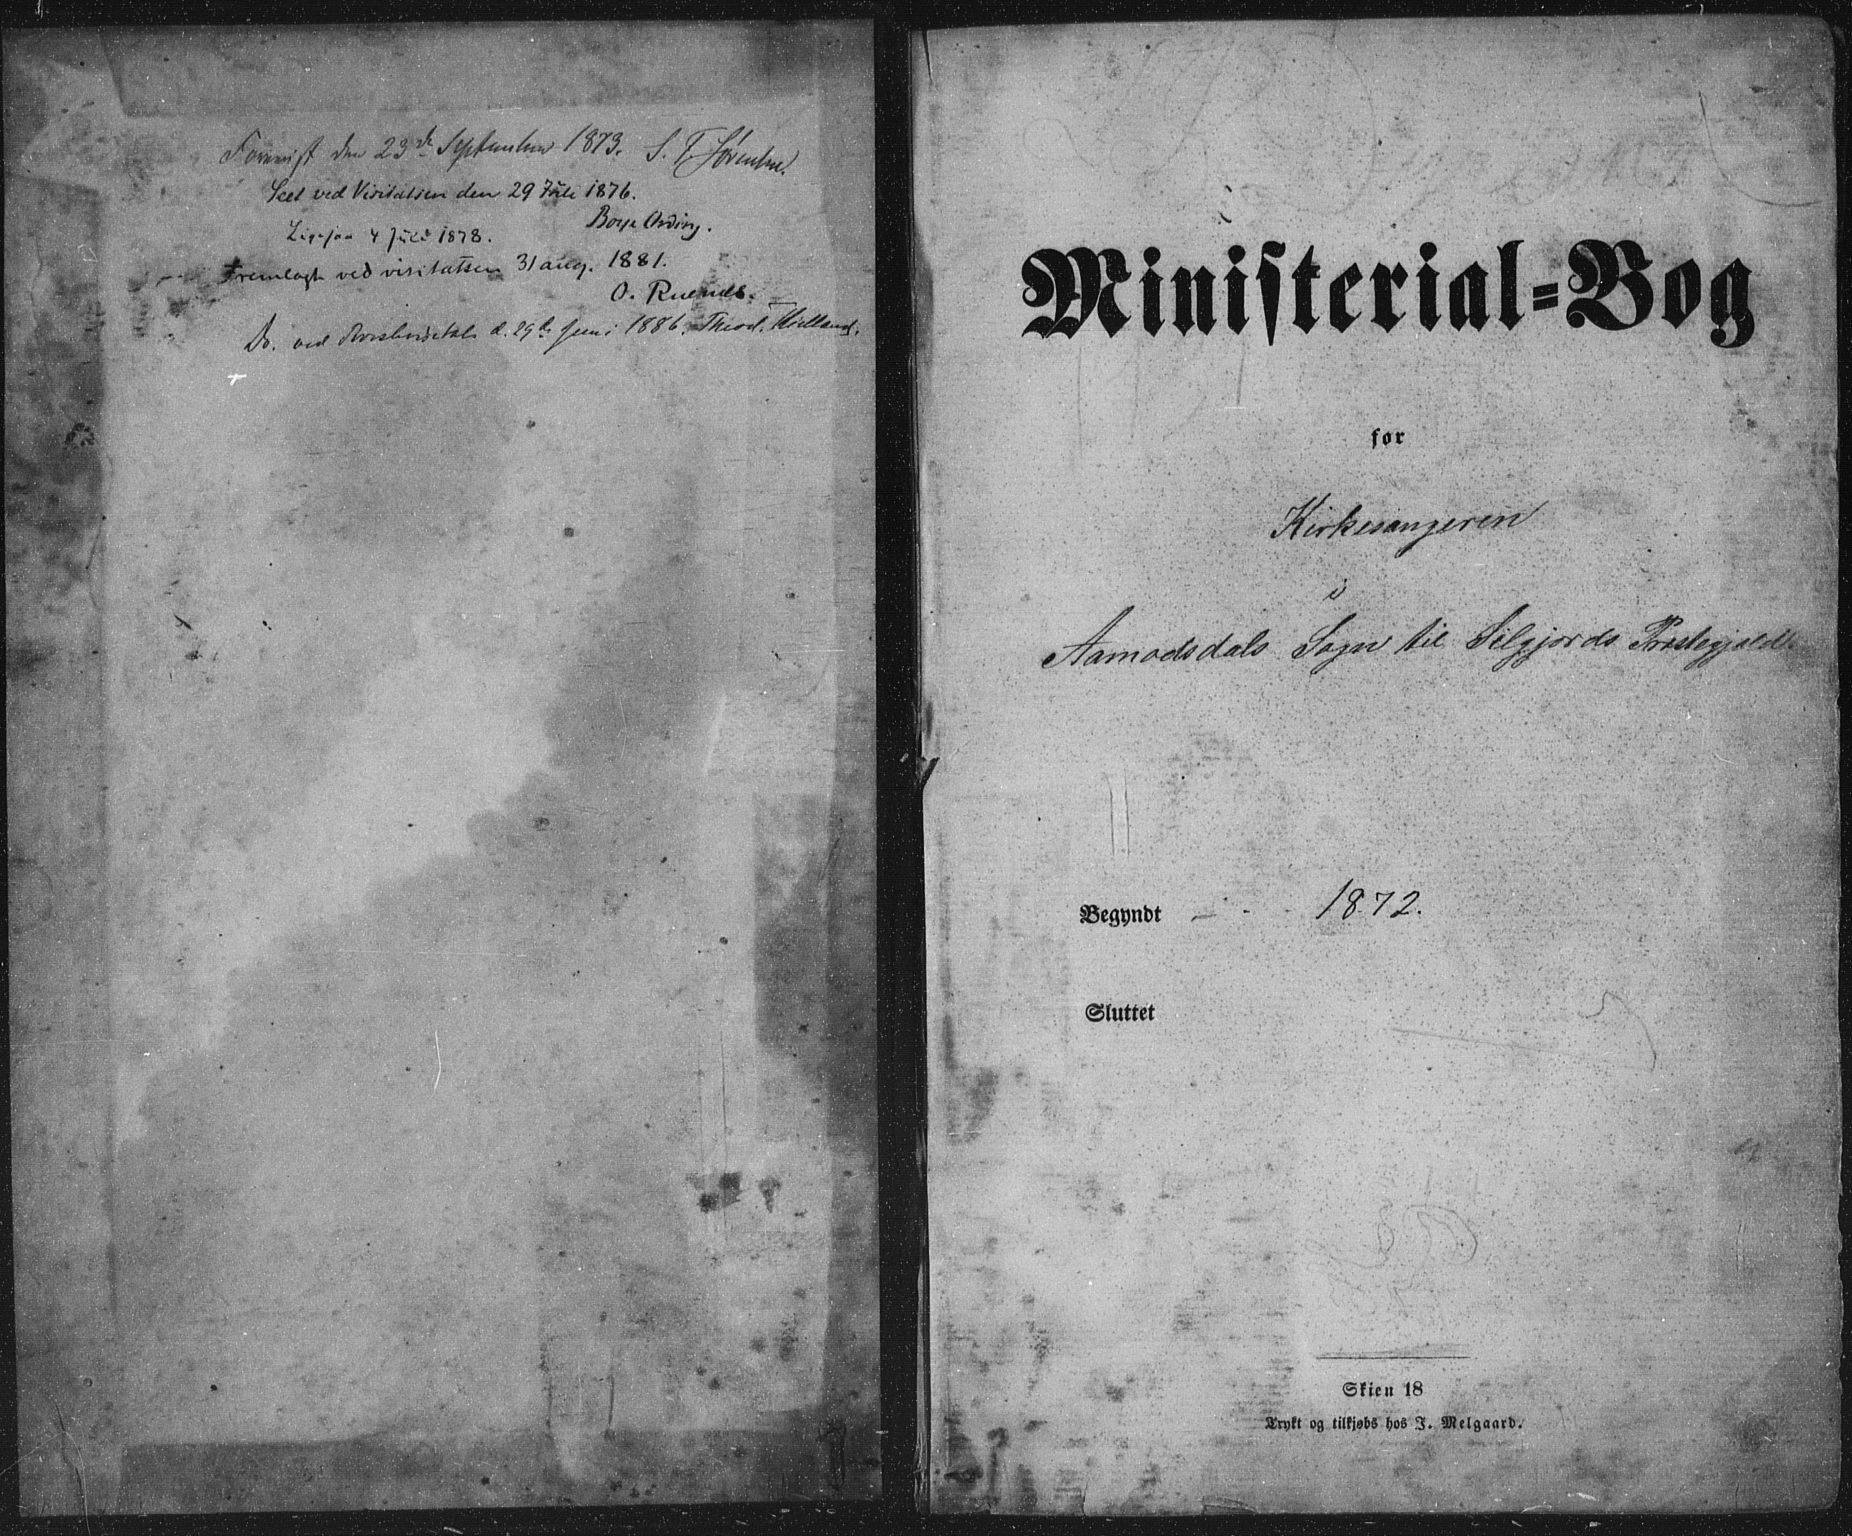 Forevist den 23de September 1873. S. T. Sørensen.
Seet ved Visitatsen den 29 Juli 1876.
Børge Ording.
Ligesaa 4 Juli 1878.
Fremlagt ved visitatsen 31 aug. 1881.
O. Ruenæs.
Do. ved d. 29de Juni 1886. Theod. Kielland.
Ministerial-Bog
for
Kirkesangeren
i
Aamodsdals Sogn til Silgjords Præstegjeld.
Begyndt 1872.
Sluttet
Skien 18
Trykt og tilkjøbs hos J. Melgaard.